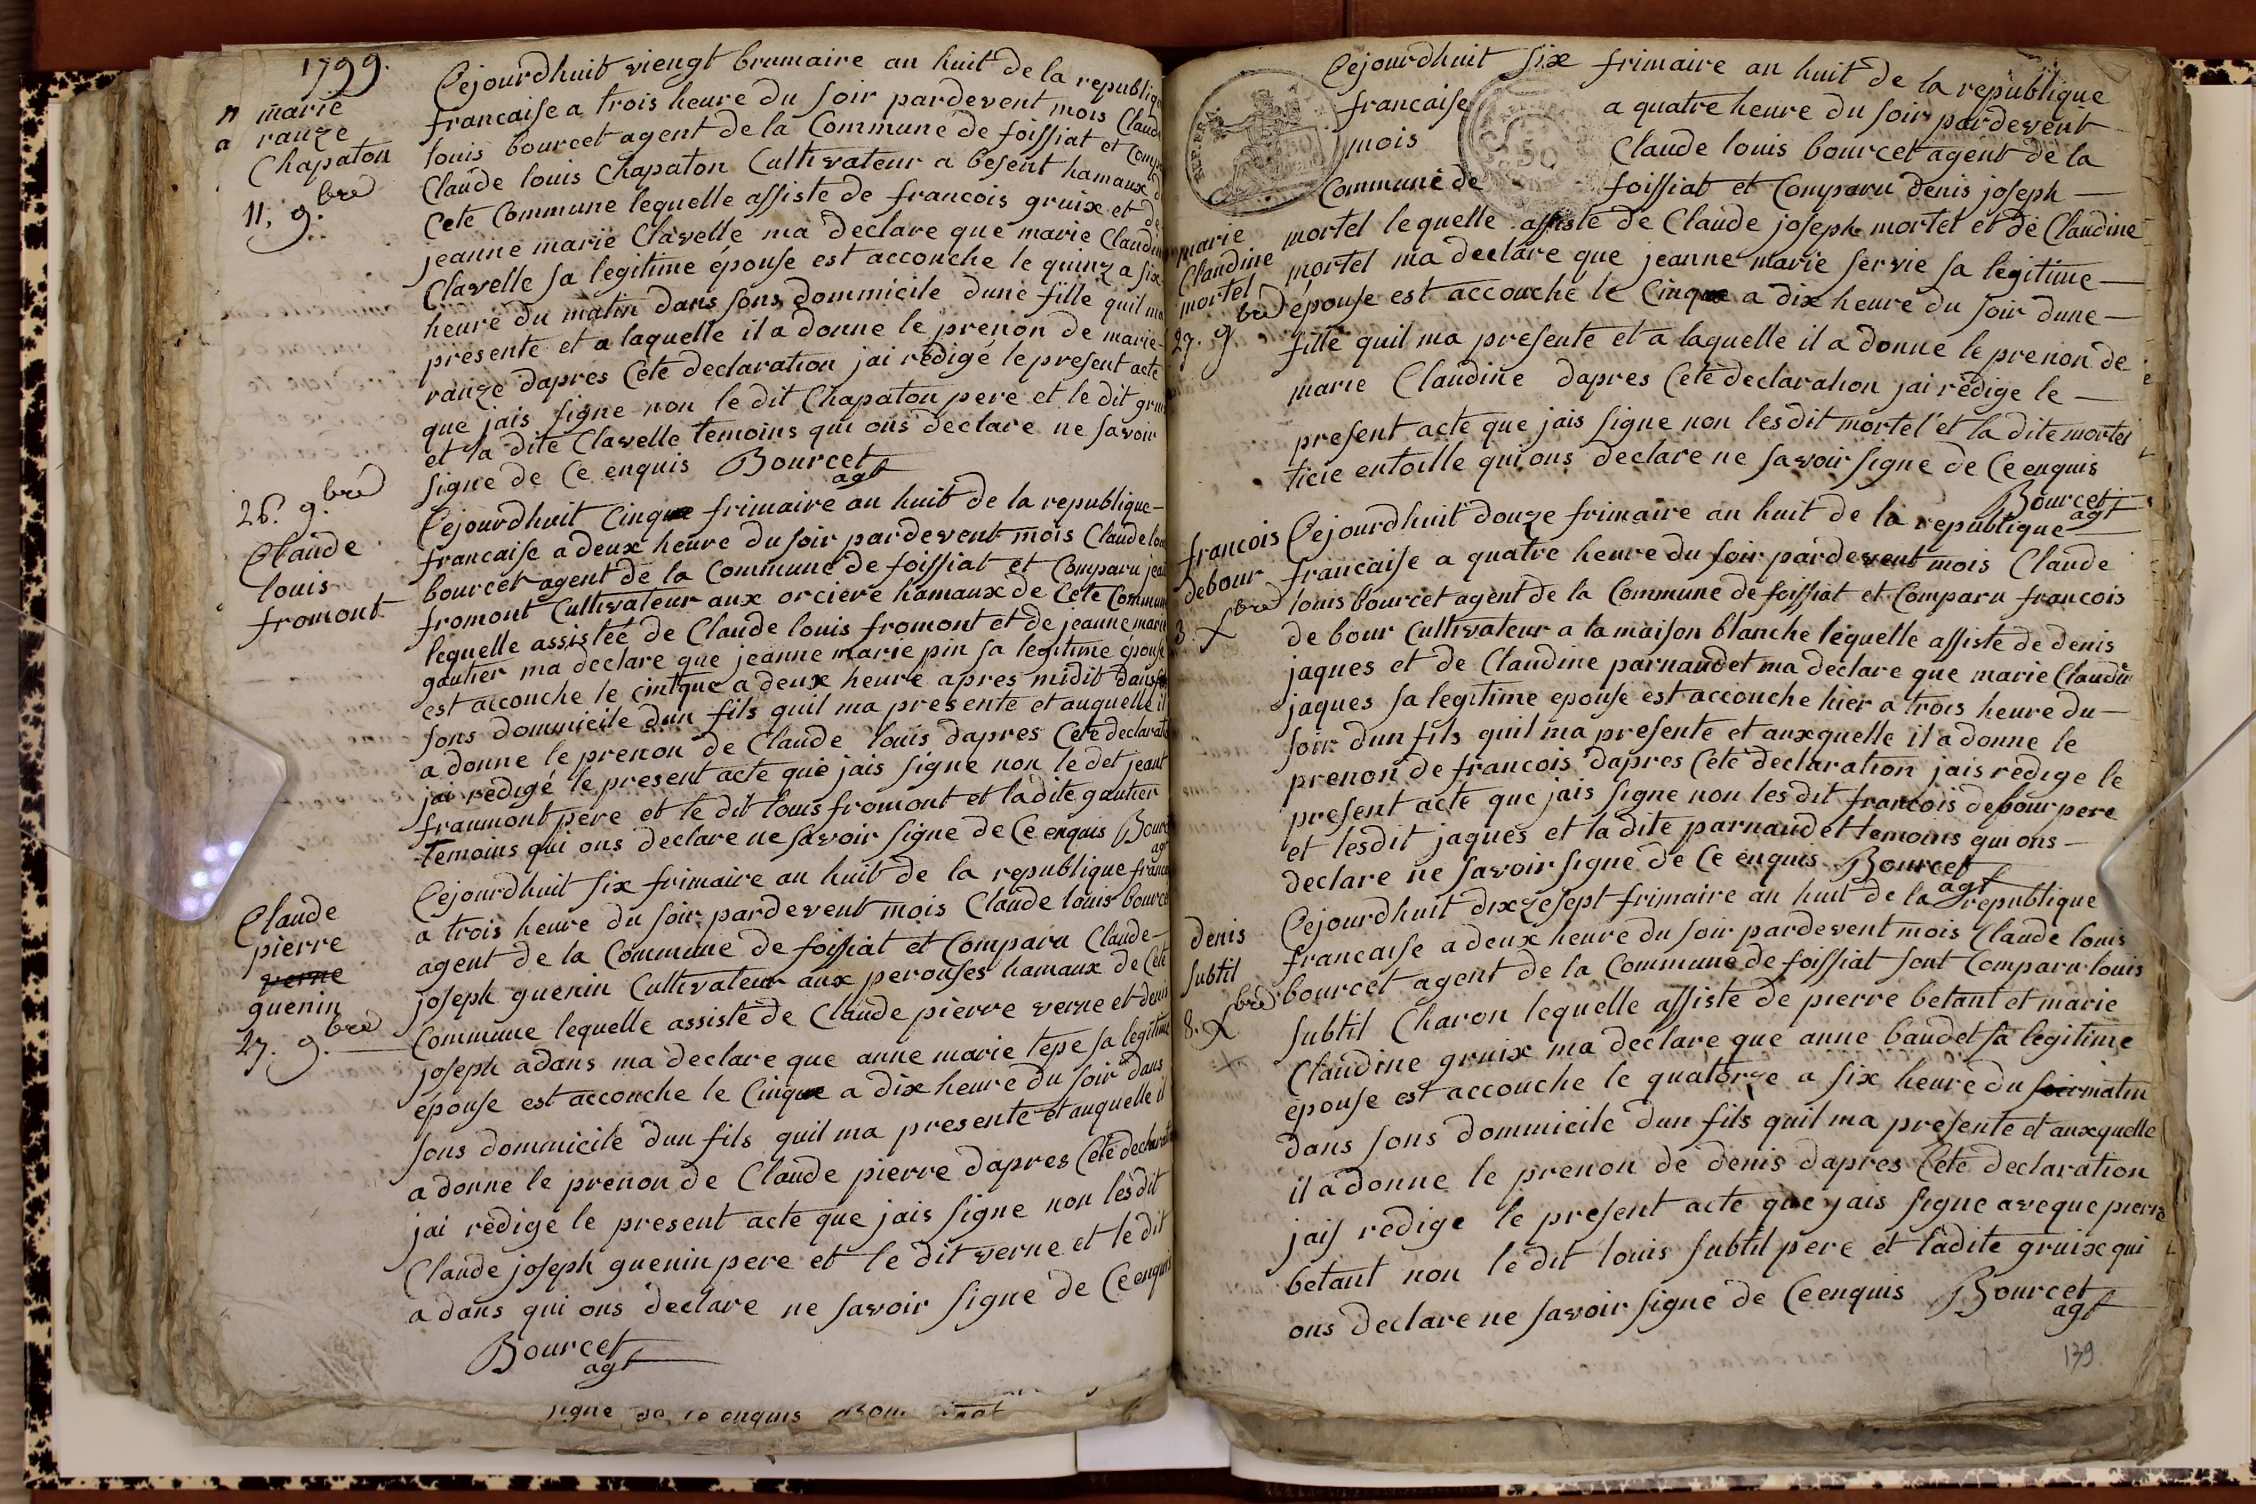 1799.
n marie
a ranze
Chapaton
11. 9.bre
Cejourdhuit viengt brumaire an huit de la republique
francaise a trois heure du soir pardevent mois Claude
louis bourcet agent de la Commune de foissiat et Comp
Claude louis Chapaton Cultivateur a besent hamaux d
Cete Commune lequelle assiste de francois gruix et de
jeanne marie Clavelle ma declare que marie Claudine
Clavelle sa legitime epouse est accouche le quinz a six
heure du matin dans sons dommicile dune fille quil ma
presente et a laquelle il a donne le prenon de marie
ranze dapres Cete declaration jai rédigé le present acte
que jais signe non le dit Chapaton pere et le dit gruix
et la dite Clavelle temoins qui ons declare ne savoir
signe de Ce enquis Bourcet
agt
26. 9.bre
Claude
louis
fromont
Cejourdhuit Cinque frimaire an huit de la republique
francaise a deux heure du soir pardevent mois Claude lou
bourcet agent de la Commune de foissiat et Comparu jean
fromont Cultivateur aux orciere hamaux de Cete Commune
lequelle assistée de Claude louis fromont et de jeanne marie
gautier ma declare que jeanne marie pin sa legitime épouse
est accouche le cintque a deux heure apres midit dans
sons dommicile dun fils quil ma presente et auquelle il
a donne le prenon de Claude louis dapres Cete declarat
jai redigé le present acte que jais signe non le det jeant
fraumont pere et le dit louis fromont et la dite gautier
temoins qui ons declare ne savoir signe de Ce enquis Bour
ag
Claude
pierre
verne
guenin
27. 9.bre
Cejourdhuit six frimaire an huit de la republique franca
a trois heure du soir pardevent mois Claude louis bource
agent de la Commune de foissiat et Comparu Claude
joseph guenin Cultivateur aux perouses hamaux de Cete
Commune lequelle assiste de Claude pierre verne et denis
joseph adans ma declare que anne marie tepe sa legitime
épouse est accouche le Cinque a dix heure du soir dans
sons dommicile dun fils quil ma presente et auquelle il
a donne le prenon de Claude pierre dapres Cete declarat
jai rédige le present acte que jais signe non les dit
Claude joseph guenin pere et le dit verne et le dit
a dans qui ons declare ne savoir signe de Ce enquis
Bourcet
agt
signe de ce enquis
Cejourdhuit six frimaire an huit de la republique
francaise a quatre heure du soir pardevent
mois Claude louis bourcet agent de la
Commune de foissiat et Comparu denis joseph
marie
Claudine
mortel
27. 9bre
mortel lequelle assiste de Claude joseph mortel et de Claudine
mortel ma declare que jeanne marie servie sa legitime
épouse est accouche le Cinque a dix heure du soir dune
fille quil ma presente et a laquelle il a donne le prenon de
marie Claudine dapres Cete declaration jai rédige le
present acte que jais signe non lesdit mortel et la dite mortel
ticie entoille qui ons declare ne savoir signe de Ce enquis
Bourcet
agt
francois
debour
3. Xbre
Cejourdhuit douze frimaire an huit de la republique
francaise a quatre heure du soir pardevent mois Claude
louis bourcet agent de la Commune de foissiat et Comparu francois
de bour Cultivateur a la maison blanche lequelle assiste de denis
jaques et de Claudine parnaudet ma declare que marie Claudine
jaques sa legitime epouse est accouche hier a trois heure du
soir dun fils quil ma presente et auxquelle il a donne le
prenon de francois dapres Cete declaration jais redige le
present acte que jais signe non les dit francois debour pere
et lesdit jaques et la dite parnaudet temoins qui ons
declare ne savoir signe de Ce enquis Bourcet
agt
denis
subtil
8. Xbre
Cejourdhuit dixzesept frimaire an huit de la republique
francaise a deux heure du soir pardevent mois Claude louis
bourcet agent de la Commune de foissiat sont Comparu louis
subtil Charon lequelle assiste de pierre betant et marie
Claudine gruix ma declare que anne baudet sa legitime
epouse est accouche le quatorze a six heure du soir matin
dans sons dommicile dun fils quil ma presente et auxquelle
il a donne le prenon de denis dapres Cete declaration
jais redige le present acte que jais signe aveque pierre
betant non le dit louis subtil pere et ladite gruix qui
ons declare ne savoir signe de Ce enquis Bourcet
agt
139